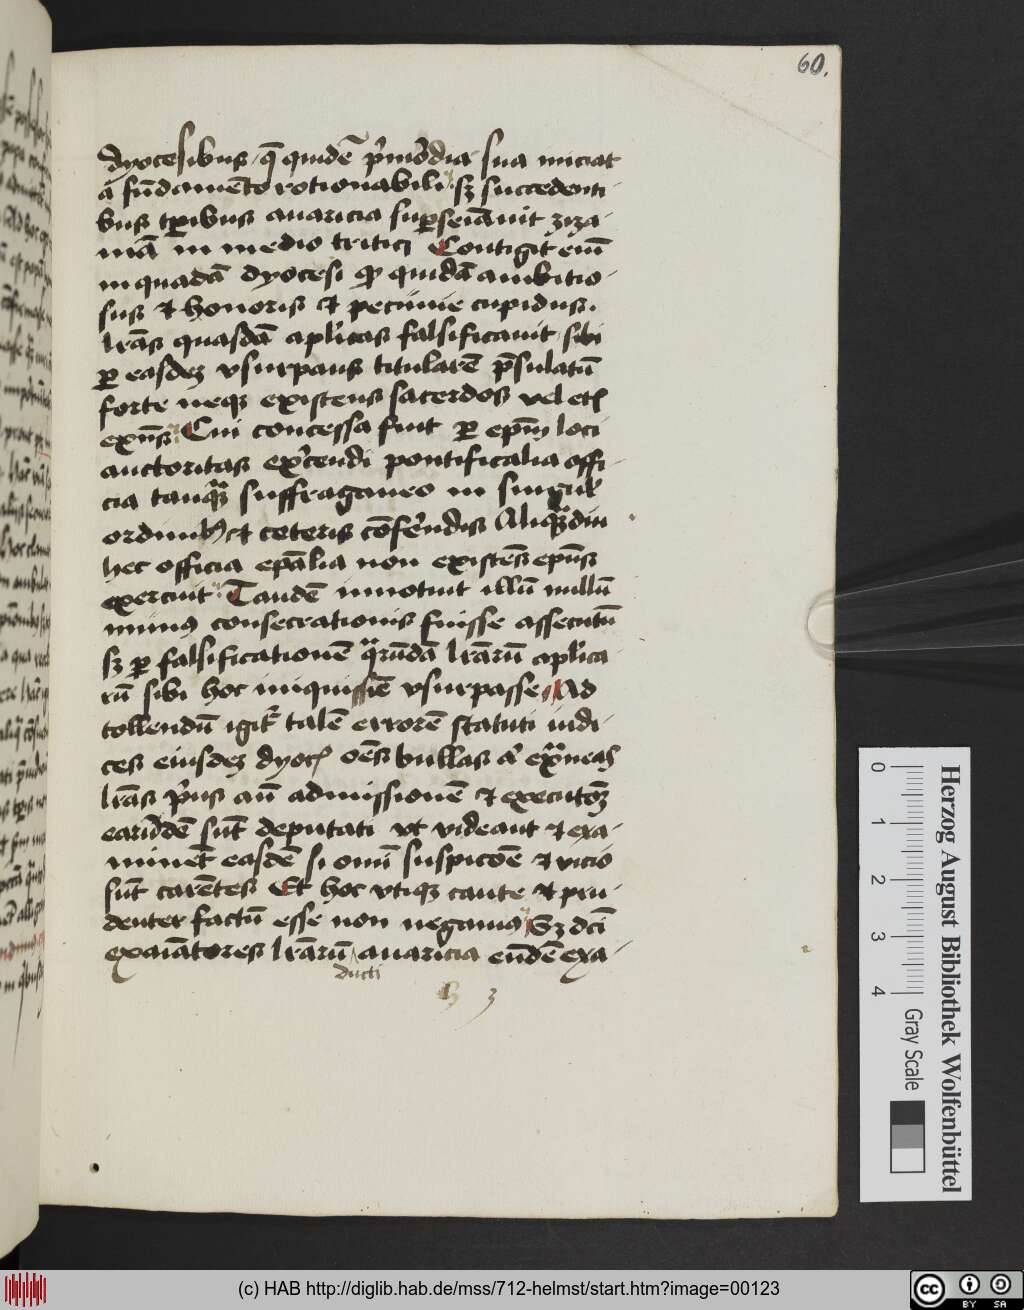 60.
dyocesibus. q̄ quidē pͥmordia sua iniciat
a fūdamēto rationabili. sꝫ succedenti
bus tꝑibus auaricia suꝑseīauit ziza
niā in medio tritici Contigit eniꝫ
in quadā dyocesi ꝙ quidā ambitio
sus et honoris et pecunie cupidus.
lrās quasdā apl̓icas falsificauit sibi
ꝑ easdeꝫ vsurpans titularē p̄sulatū
forte neqꝫ existens sacerdos vel
exn̄s Cui concessa fuit ꝑ ep̄m loci
auctoritas ex̓cendi pontificalia offi
cia tanqᷓꝫ suffraganeo in singul̓
ordinibꝫ et ceteris cōfer̓ndis Aliqᷓdiu
hec officia ep̄alia non existēs ep̄us
exercuit Tandē innotuit illū nullū
munꝰ consecrationis fuisse assecutū
sꝫ ꝑ falsificationē qͣrūdā lrārū apl̓ica
rū sibi hoc iniquissīe vsurpasse Ad
tollendū igit᷑ talē errorē statuti iudi
ces eiusdeꝫ dyoc̄ oēs bullas
lrās pͥus an̄ admissionē et executōꝫ
earūdē sūt deputati vt videant et exa
minēt easdē si omī suspicōe et vicio
sūt carētes Et hoc vtiqꝫ caute et pru
denter factū esse non negamꝰ Sꝫ dc̄i
exaīatores lrārū auaricia eūdē exa
ducti
3
Herzog August Bibliothek Wolfenbüttel
0 1 2 3 4 Gray Scale
(c) HAB http://diglib.hab.de/mss/712-helmst/start.htm?image=00123
cc BY SA